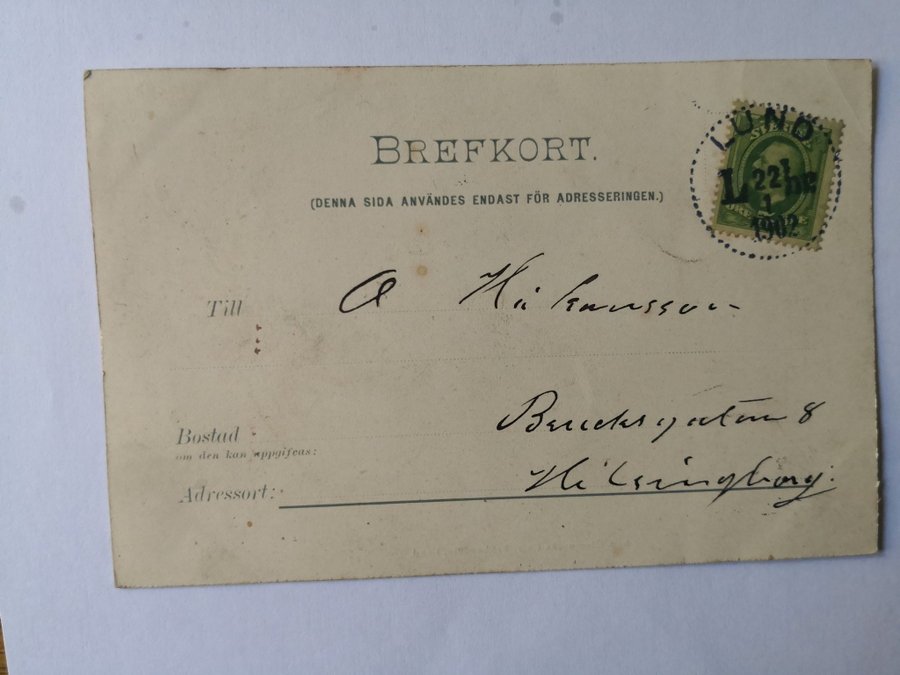 BREFKORT.
(DENNA SIDA ANVÄNDES ENDAST FÖR ADRESSERINGEN.)
LUND
L 221
1
1902
Till
A Håkansson
Bostad
om den kan uppgifvas:
8
Adressort:
Helsingborg.